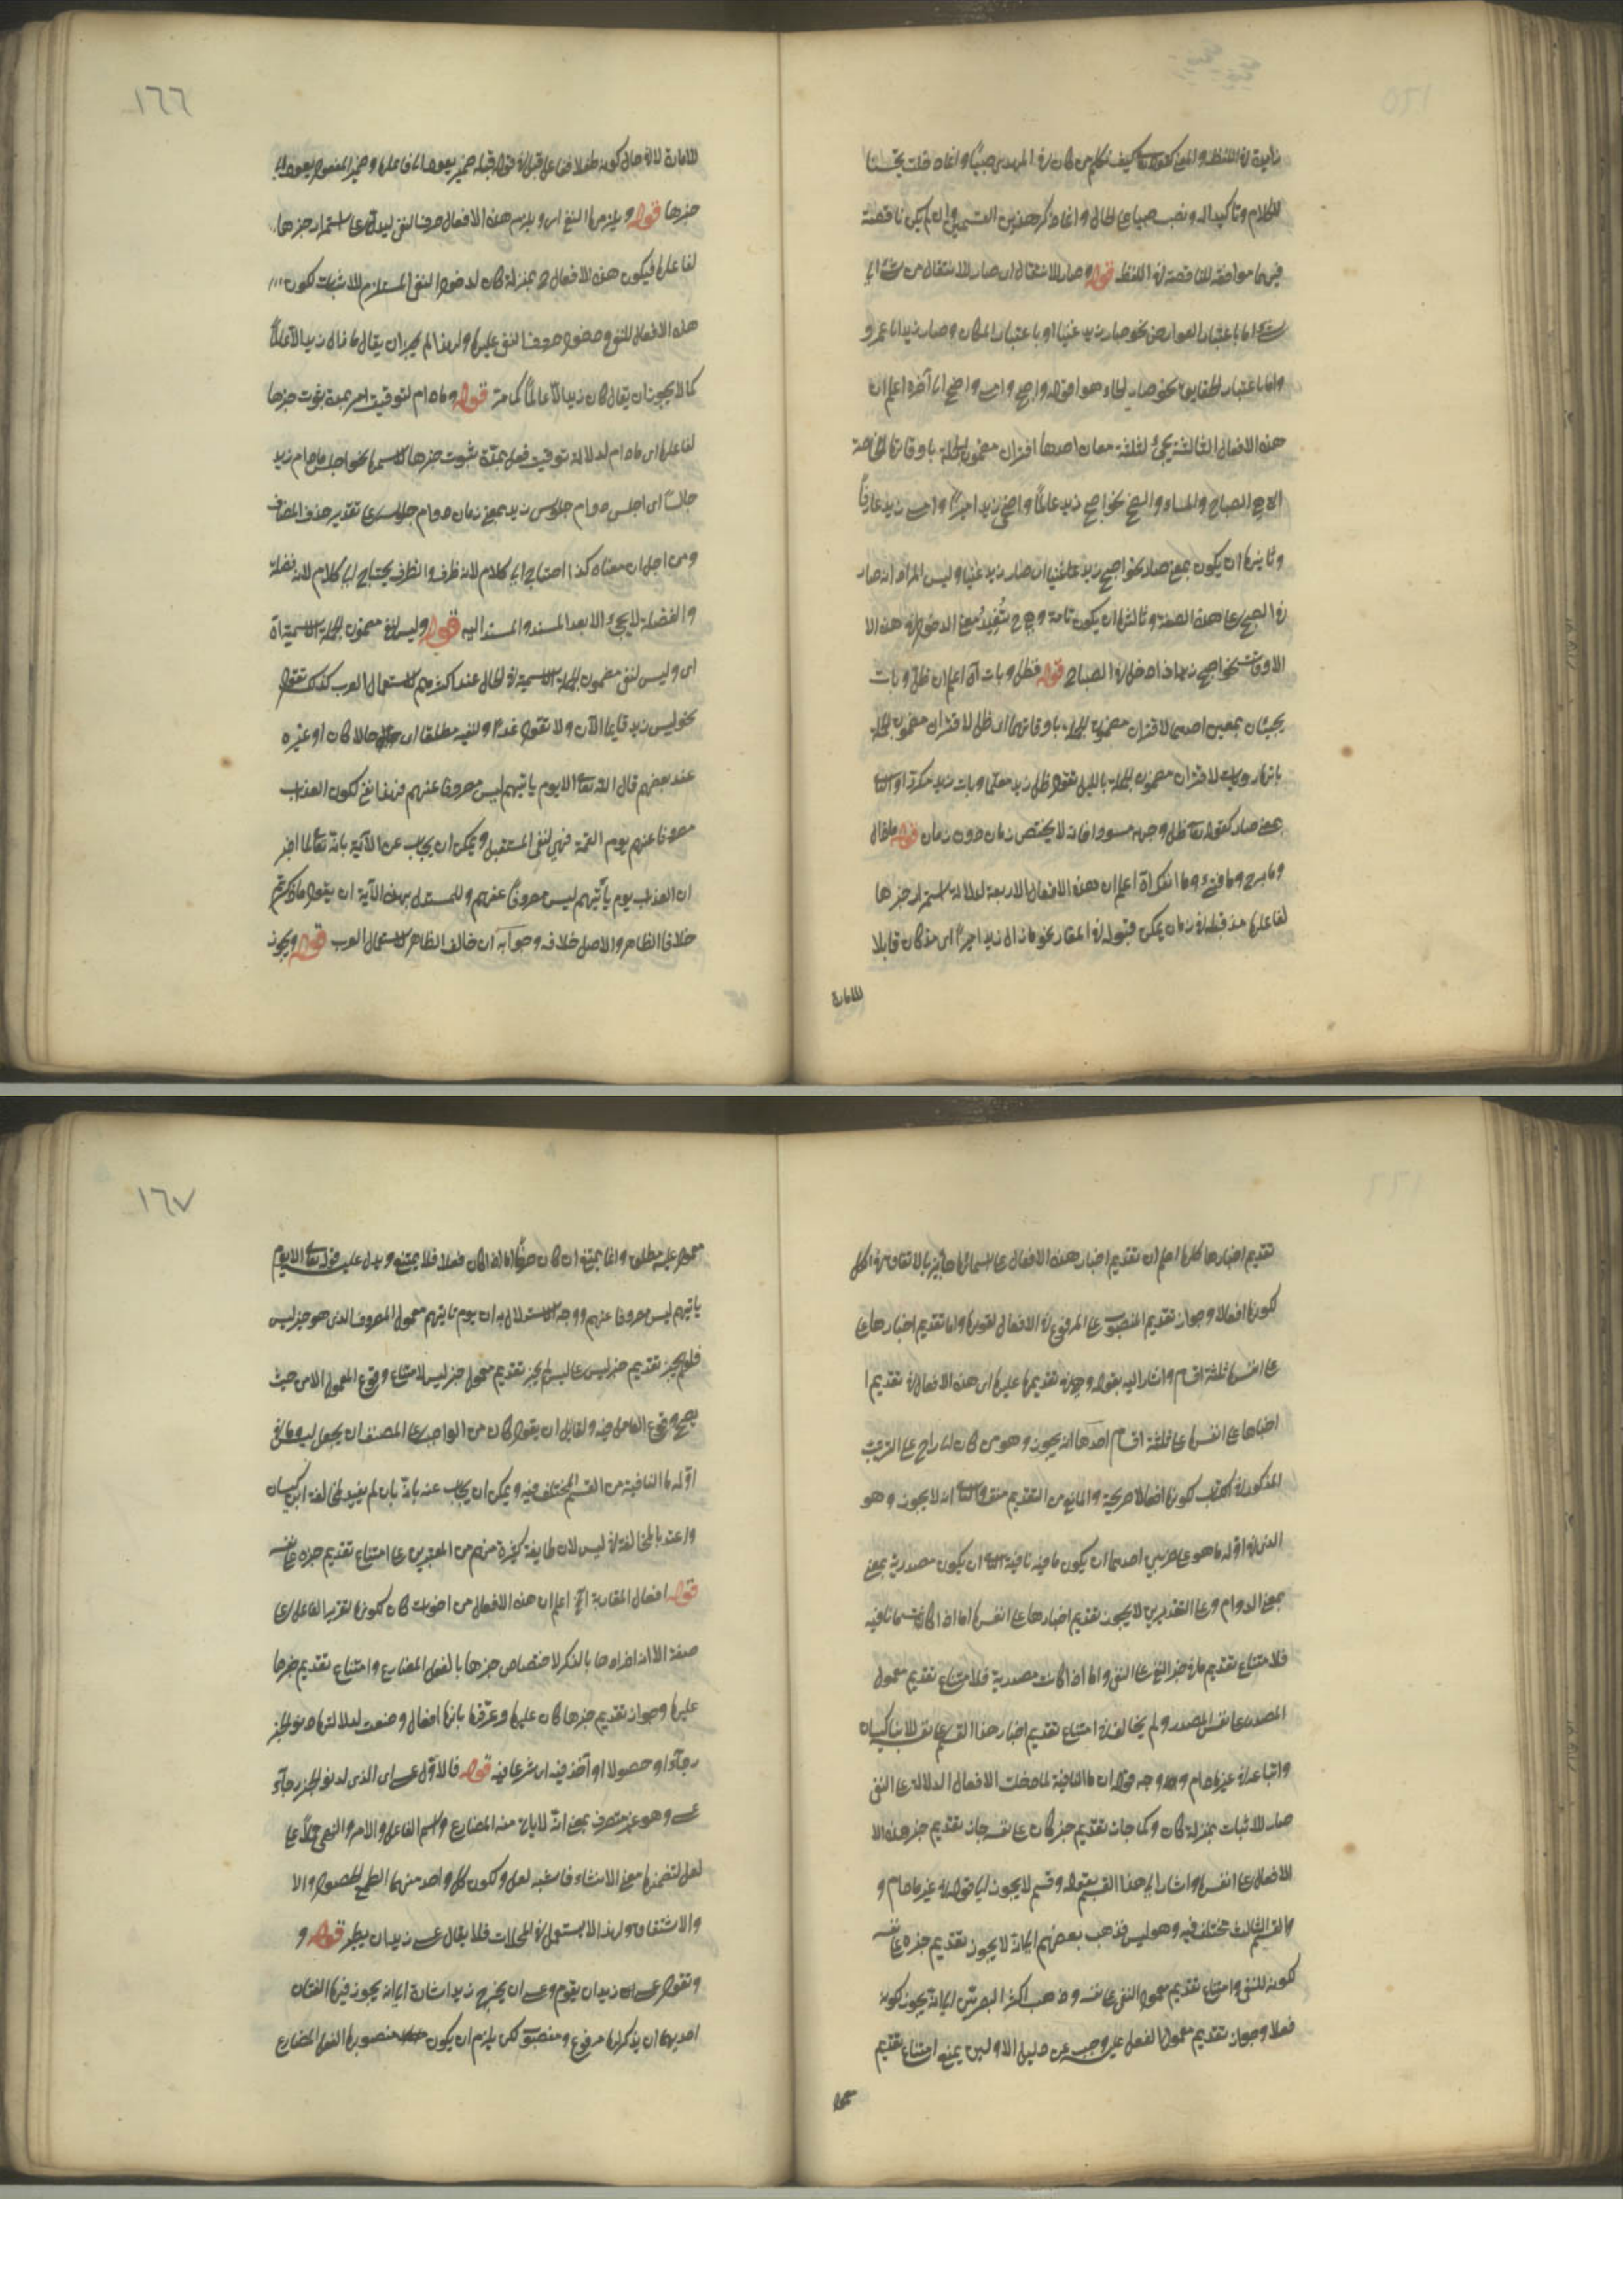 زايدة في اللفظ والمعنى كقوله تعالى كيف نكلم من كان في المهد صبيا وانما قلت تحسينا
للكلام وتاكيدا له ونصب صبيا على الحال وانما ذكر هذين القسمين وان لم يكن ناقصة
فيهما موافقة للناقصة في اللفظ قوله وصار للانتقال اى صار للانتقال من شئ الى
شئ اما باعتبار العوارض نحو صار زيد غنيا او باعتبار المكان وصار زيد الى عمرو
واما باعتبار الحقايق نحو صار الماء هواء قوله واصبح وامسى واضحى الى آخره اعلم ان
هذه الافعال الثالثة يجئ لثلثة معان احدها اقتران مضمون الجملة باوقاتها الخاصة
الصباح والمساء والضحى نحو اصبح زيد عالما واضحى زيد اميرا وامسى زيد عارفا
وثانيها ان يكون بمعنى صار نحو اصبح زيد غنيا اى صار زيد غنيا وليس المراد انه صار
في الصبح على هذه الصفة وثالثها ان يكون تامة وح تفيد معنى الدخول في هذه الا
الاوقات نحو اصبح زيد اذا دخل في الصباح قوله فظل وبات آه اعلم ان ظل وبات
يجيئان بمعنيين احدهما لاقتران مضمون الجملة باوقاتهما اى ظل لاقتران مضمون الجملة
بالنهار وبات لاقتران مضمون الجملة بالليل تقول ظل زيد مفكرا والثانى
بمعنى صار كقوله تعالى ظل وجهه مسودا فانه لا يختص بزمان دون زمان قوله ما زال
وما برح وما فتئ وما انفك آه اعلم ان هذه الافعال الاربعة لدلالة استمرار خبرها
لفاعلها مذ قبله في زمان يمكن قبوله في المعتاد نحو ما زال زيد اميرا اى مذ كان قابلا
للامارة
١٦٦
للامارة لا في حال كونه طفلا
خبرها قوله ويلزمها النفى اى ويلزم هذه الافعال حرف النفى ليدل على استمرار خبرها
لفاعلها فيكون هذه الافعال بمنزلة كان لدخول النفى المستلزم للاثبات لكون
هذه الافعال للنفى ودخول حرف النفى عليها ولهذا لم يجز ان يقال ما زال زيد الا عالما
كما لا يجوز ان يقال كان زيد الا عالما كما مر قوله وما دام لتوقيت امر بمدة ثبوت خبرها
لفاعلها اى ما دام لدلالة توقيت فعل بمدة ثبوت خبرها لاسمها نحو اجلس ما دام زيد
جالسا اى اجلس دوام جلوس زيد بمعنى زمان دوام جلوسه على تقدير حذف المضاف
ومن اجل ان معناه كذا احتاج الى كلام لانه ظرف والظرف يحتاج الى كلام لانه فضلة
والفضلة لا يجئ الا بعد المسند والمسند اليه قوله وليس لنفى مضمون الجملة الاسمية آه
اى وليس لنفى مضمون الجملة الاسمية في الحال عند اكثرهم لاستعمال العرب كذلك تقول
نحو ليس زيد قايما الآن ولا تقول غدا ولنفيه مطلقا اى حالا كان او غيره
عند بعضهم قال الله تعالى الا يوم ياتيهم ليس مصروفا عنهم فهذا نفى لكون العذاب
مصروفا عنهم يوم القيمة فهى لنفى المستقبل ويمكن ان يجاب عن الآية بانه تعالى لما اخبر
ان العذاب يوم يأتيهم ليس مصروفا عنهم وللمستدل بهذه الآية ان يقول ما ذكرتم
خلاف الظاهر والاصل خلافه وجوابه ان خالف الظاهر لاستعمال العرب قوله ويجوز
تقديم اخبارها كلها اعلم ان تقديم اخبار هذه الافعال على اسمائها جائز بالاتفاق في الكل
لكونها افعالا وجواز تقديم المنصوب على المرفوع في الافعال لقوتها واما تقديم اخبارها على
على انفسها ثلثة اقسام واشار اليه بقوله وهى في تقديمها عليها اى هذه الافعال في تقديم ا
اخبارها على انفسها على ثلثة اقسام احدها انه يجوز وهو من كان الى راح على الترتيب
المذكور في الكتاب لكونها افعالا صريحة والمانع من التقديم منتف والثانى انه لا يجوز وهو
الذى في اوله ما وهو على ضربين احدهما ان يكون ما فيه نافية والثانى ان يكون مصدرية بمعنى
بمعنى الدوام وعلى التقديرين لا يجوز تقديم اخبارها على انفسها اما اذا كانت ما نافية
فلامتناع تقديم ما في حيز النفى على النفى واما اذا كانت مصدرية فلامتناع تقديم معمول
المصدر على نفس المصدر ولم يخالف في امتناع تقديم اخبار هذا القسم على نفسه الا ابن كيسان
واتباعه في غير ما دام ووجه قوله ان ما النافية لما دخلت الافعال الدلالة على النفى
صار للاثبات بمنزلة كان وكما جاز تقديم خبر كان على نفسه جاز تقديم خبر هذه الا
الافعال على انفسها واشار الى هذا القسم بقوله وقسم لا يجوز الى قوله في غير ما دام و
والقسم الثالث مختلف فيه وهو ليس فذهب بعضهم الى انه لا يجوز تقديم خبره على نفسه
لكونه للنفى وامتناع تقديم معمول النفى على نفسه وذهب اكثر البصريين الى انه يجوز لكونه
فعلا وجواز تقديم معمول الفعل عليه وجيب عن دليل الاولين بمنع امتناع تقديم
معمول
١٦٧
معمول عليه مطلقا وانما يمتنع ان كان حرفا اما اذا كان فعلا فلا يمتنع ويدل عليه قوله تعالى الا يوم
ياتيهم ليس مصروفا عنهم ووجه الاستدلال به ان يوم ياتيهم معمول المصروف الذى هو خبر ليس
فلو لم يجز تقديم خبر ليس على ليس لم يجز تقديم معمول خبر ليس لامتناع وقوع المعمول الا من حيث
يصح وقوع العامل فيه ولقايل ان يقول كان من الواجب على المصنف ان يجعل ليس وما في
اوله ما النافية من القسم المختلف فيه ويمكن ان يجاب عنه بانه لم يعتد لمخالفة ابن كيسان
واعتد بالمخالفة في ليس لان طايفة كثيرة منهم من المعتبرين على امتناع تقديم خبره على نفسه
قوله افعال المقاربة الخ اعلم ان هذه الافعال من اخوات كان لكونها لتقرير الفاعل على
صفة الا انه افردها بالذكر لاختصاص خبرها بالفعل المضارع وامتناع تقديم خبرها
عليها وجواز تقديم خبرها كان عليها وعرفها بانها افعال وضعت لدلالتها دنو الخبر
رجاء او حصولا او أخذ فيه اى شرعا فيه قوله فالاول عسى اى الذى لدنو الخبر رجاء
عسى وهو غير متصرف بمعنى انه لا يات منه المضارع واسم الفاعل والامر والنهى حملا على
لعل لتضمنها معنى الانشاء فاشبه لعل ولكون كل واحد منهما الطمع للحصول والا
والاشتقاق ولهذا لا يستعمل في المحالات فلا يقال عسى زيد ان يطير قوله و
وتقول عسى زيد ان يقوم وعسى ان يخرج زيد اشارة الى انه يجوز فيها لغتان
احديهما ان يذكر لها مرفوع ومنصوب لكن يلزم ان يكون منصوبها الفعل المضارع